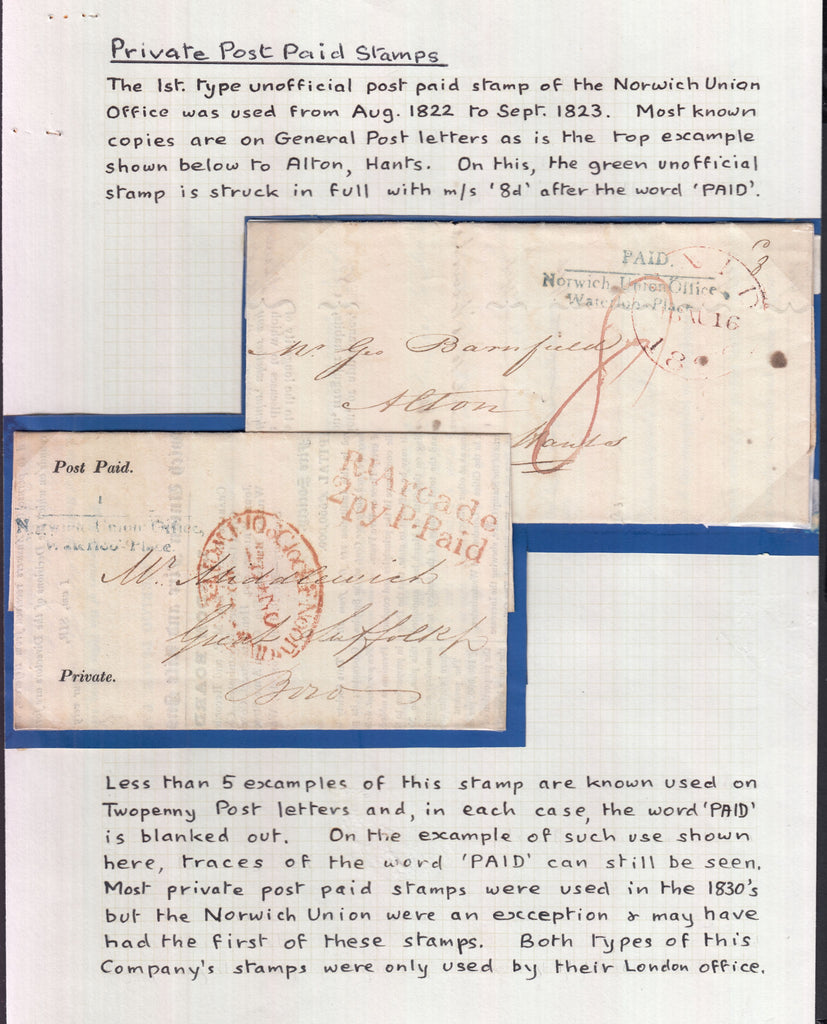 Private Post Paid Stamps
The 1st. type unofficial post paid stamp of the Norwich Union
Office was used from Aug. 1822 to Sept. 1823. Most known
copies are on General Post letters as is the top example
shown below to Alton, Hants. On this, the green unofficial
stamp is struck in full with m/s '8d' after the word 'PAID'.
PAID.
Norwich Union Office,
Waterloo-Place
16
Mr. Geo Barnfield
8
Alton
Hants
Post Paid.
Rt Arcade
2py P. Paid
Norwich Union Office,
Waterloo-Place.
Mr. Middlewich
Great Suffolk
Boro
Private.
Less than 5 examples of this stamp are known used on
Twopenny Post letters and, in each case, the word 'PAID'
is blanked out. On the example of such use shown
here, traces of the word 'PAID' can still be seen.
Most private post paid stamps were used in the 1830's
but the Norwich Union were an exception & may have
had the first of these stamps. Both types of this
Company's stamps were only used by their London office.